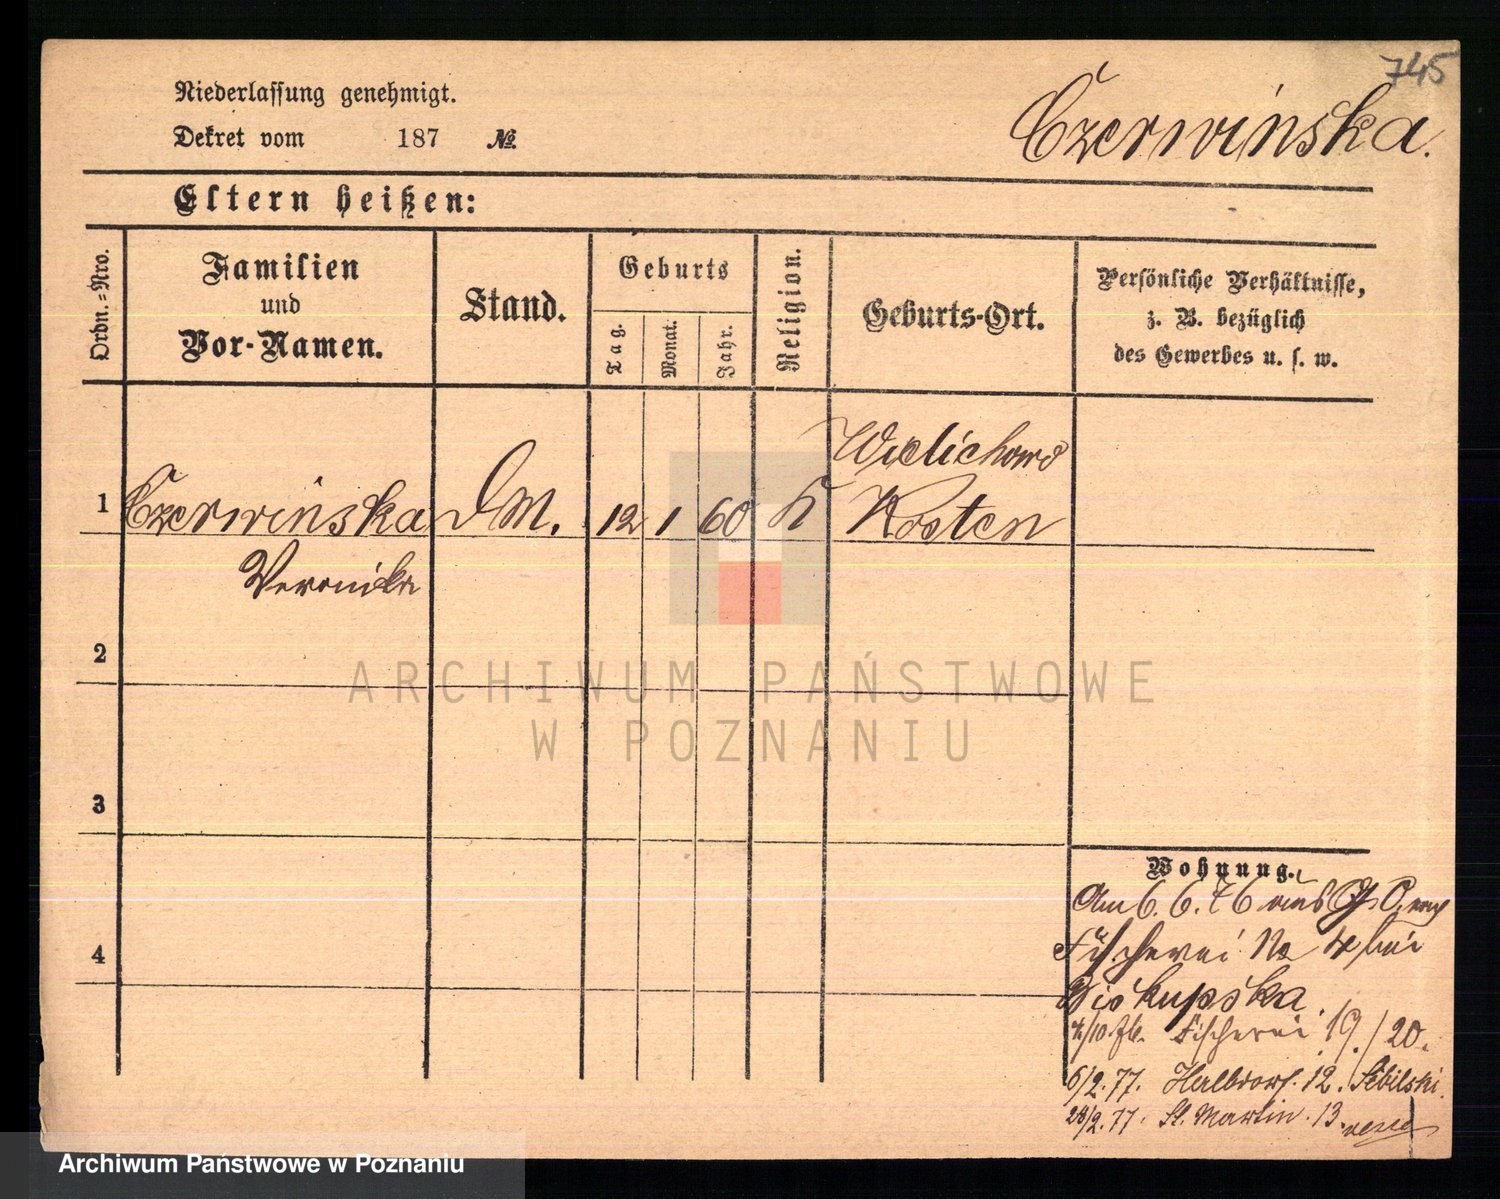 745
Niederlassung genehmigt.
Dekret vom 187 №
Czerwińska.
Eltern heißen:
Ordn.=Nro.
Familien
und
Vor-Namen.
Stand.
Geburts
Tag.
Monat.
Jahr.
Religion.
Geburts-Ort.
Persönliche Verhältnisse,
z. B. bezüglich
des Gewerbes u. s. w.
Wielichowo
1 Czerwińska DM. 12 1 60 K Kosten
Veronika
2
3
4
Wohnung.
Am 6. 6. 76 aus
Fischerei No 4 bei
Biskupska
4/10 76. Fischerei 19./20.
6/2. 77. Halbdorf. 12.
28/2. 77. St. Martin. 13.
ARCHIWUM PAŃSTWOWE
W POZNANIU
Archiwum Państwowe w Poznaniu